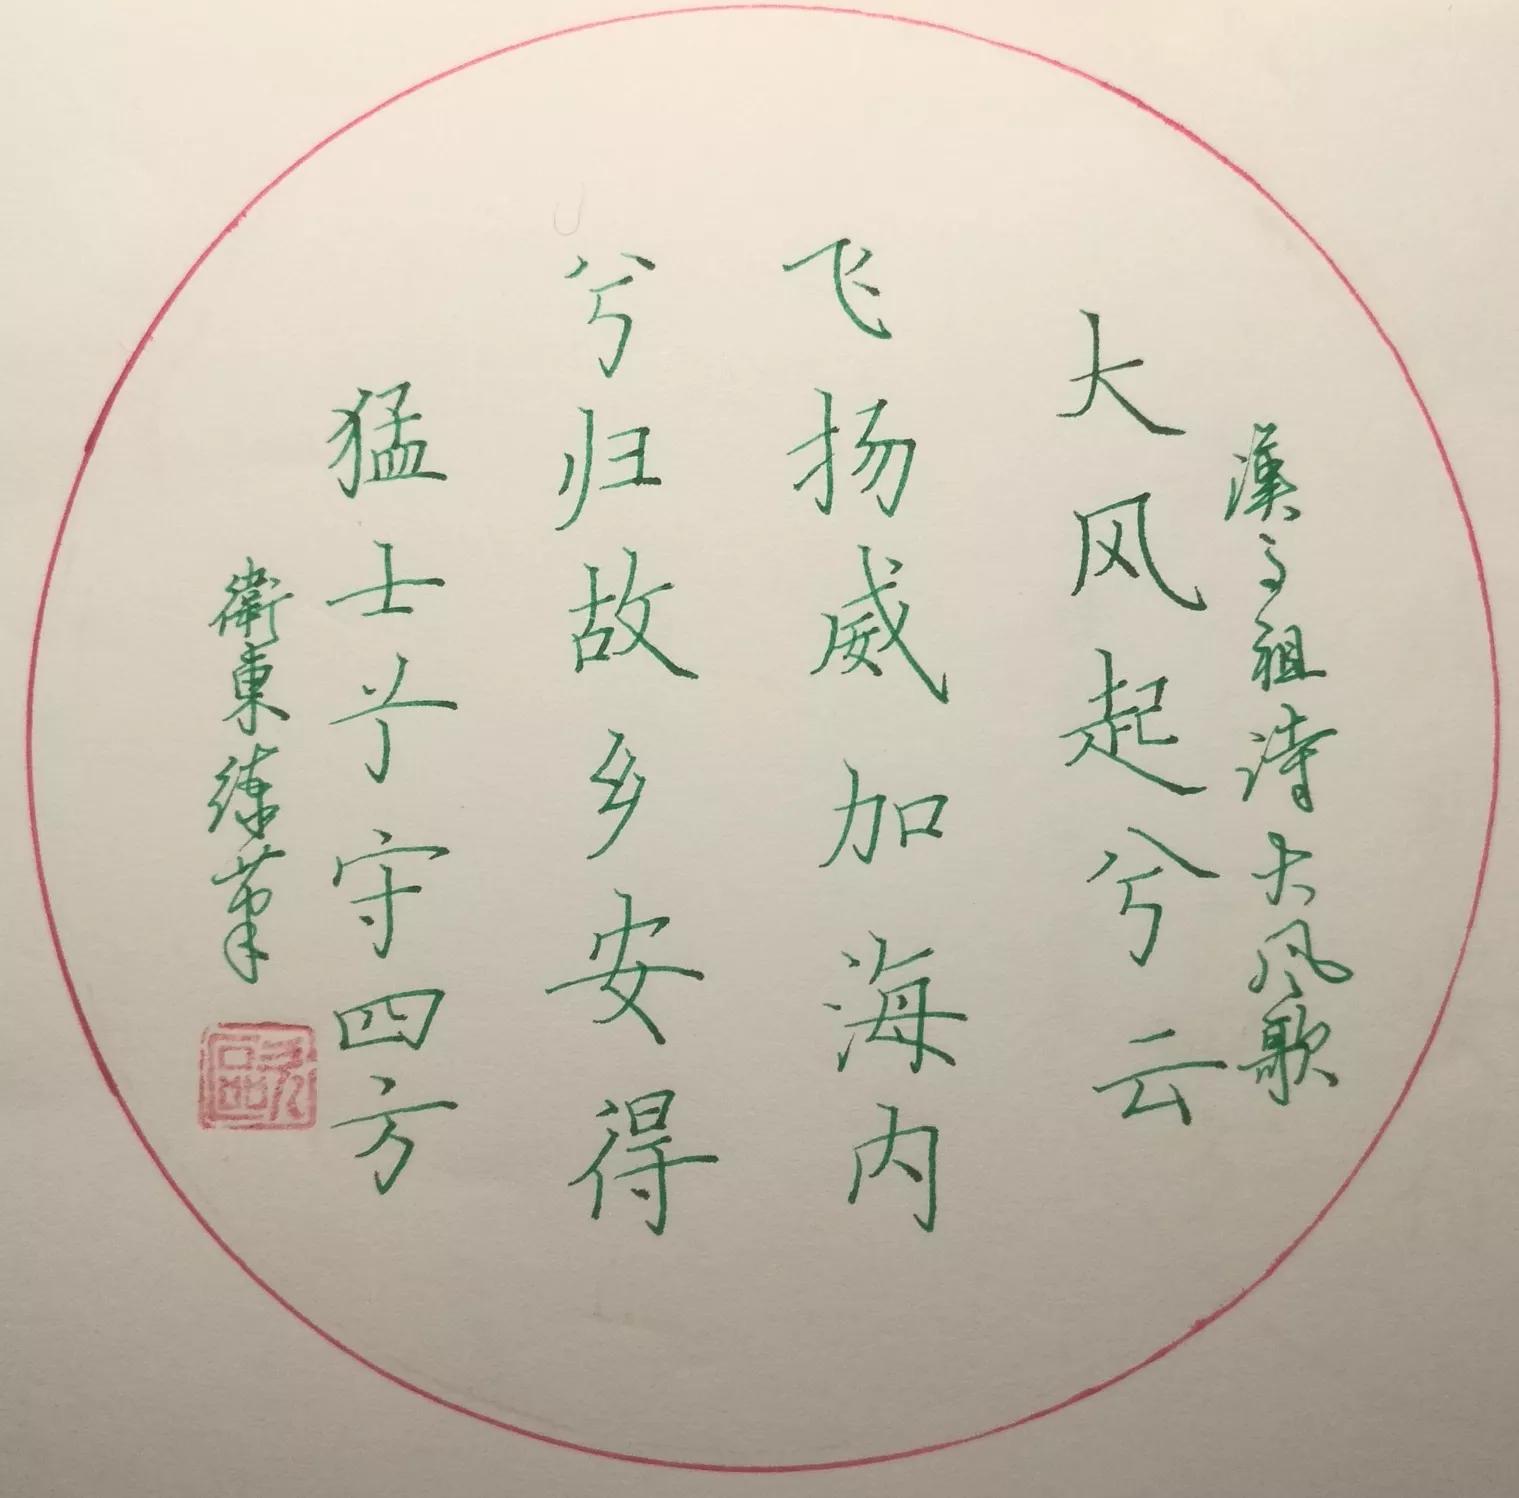 漢高祖詩大风歌
大风起兮云
飞扬威加海内
兮归故乡安得
猛士兮守四方
衛東練筆